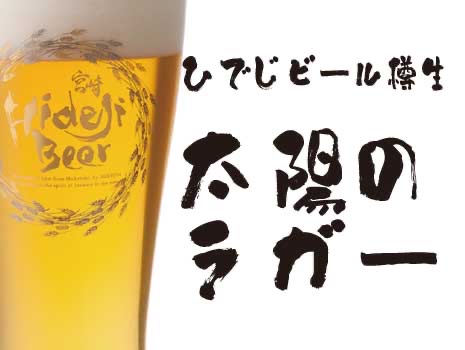 宮崎
Hideji
Beer
ひでじビール樽生
太陽の
ラガー